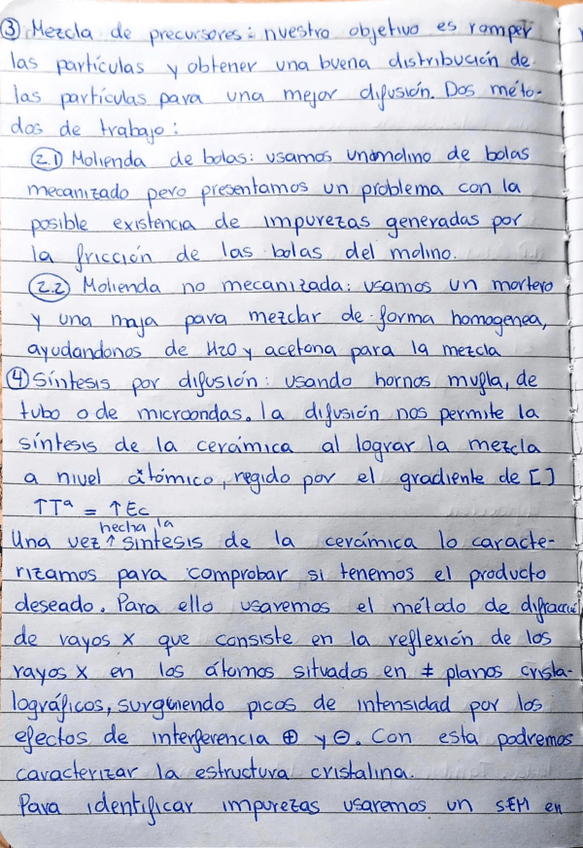 ③ Mezcla de precursores: nuestro objetivo es romper
las partículas y obtener una buena distribución de
las partículas para una mejor difusión. Dos méto-
dos de trabajo:
2.1 Molienda de bolas: usamos un molino de bolas
mecanizado pero presentamos un problema con la
posible existencia de impurezas generadas por
la fricción de las bolas del molino.
2.2 Molienda no mecanizada: usamos un mortero
y una maja para mezclar de forma homogenea,
ayudandonos de H2O y acetona para la mezcla
④ Síntesis por difusión: usando hornos mufla, de
tubo o de microondas. La difusión nos permite la
síntesis de la cerámica al lograr la mezcla
a nivel atómico, regido por el gradiente de []
↑Tª = ↑Ec
hecha la
Una vez ↑ síntesis de la cerámica lo caracte-
rizamos para comprobar si tenemos el producto
deseado. Para ello usaremos el método de difracció
de rayos X que consiste en la reflexión de los
rayos X en los átomos situados en ≠ planos crista-
lográficos, surguiendo picos de intensidad por los
efectos de interferencia ⊕ y ⊖. Con esta podremos
caracterizar la estructura cristalina.
Para identificar impurezas usaremos un SEM en